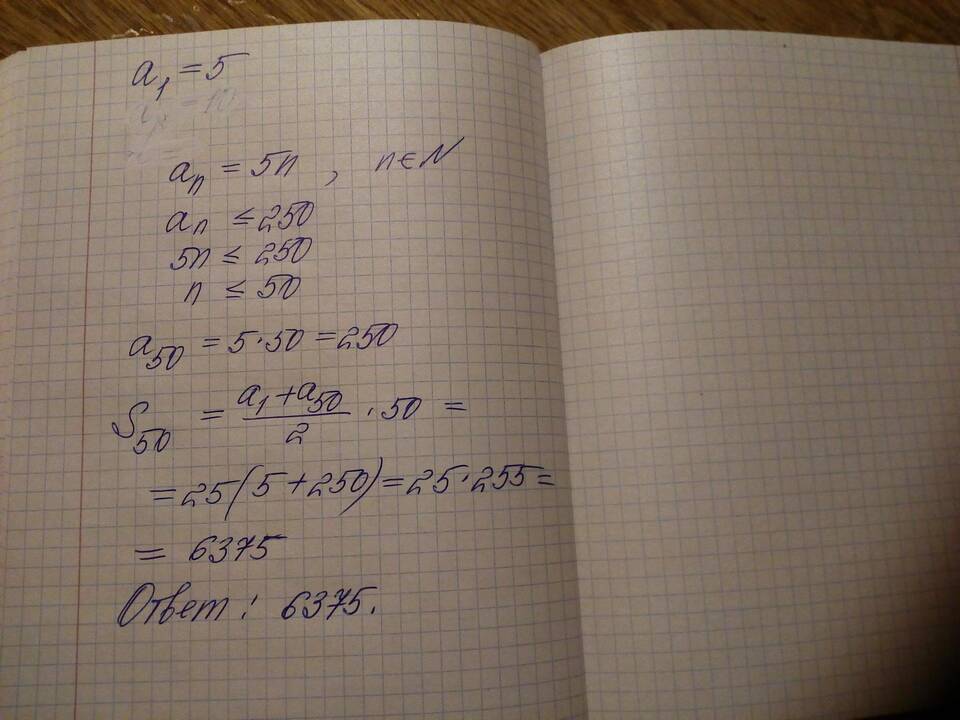 a₁ = 5
aₙ = 5n , n ∈ N
aₙ ≤ 250
5n ≤ 250
n ≤ 50
a₅₀ = 5·50 = 250
S₅₀ = (a₁ + a₅₀)/2 · 50 =
= 25(5 + 250) = 25·255 =
= 6375
Ответ: 6375.